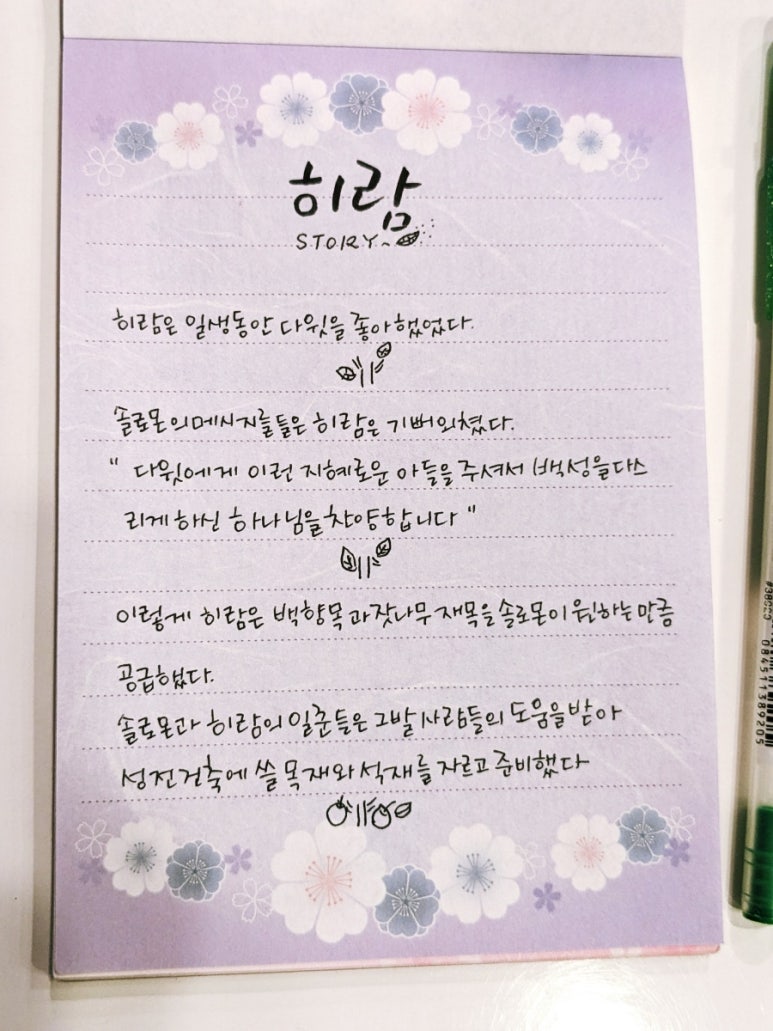 히람
STORY~
히람은 일생동안 다윗을 좋아했었다.
솔로몬의메시지를들은 히람은 기뻐외쳤다.
" 다윗에게 이런 지혜로운 아들을 주셔서 백성을다스
리게하신 하나님을찬양합니다 "
이렇게 히람은 백향목과잣나무재목을솔로몬이원하는만큼
공급했다.
솔로몬과 히람의 일꾼들은 그발사람들의 도움을받아
성전건축에 쓸 목재와석재를 자르고준비했다
084511389205